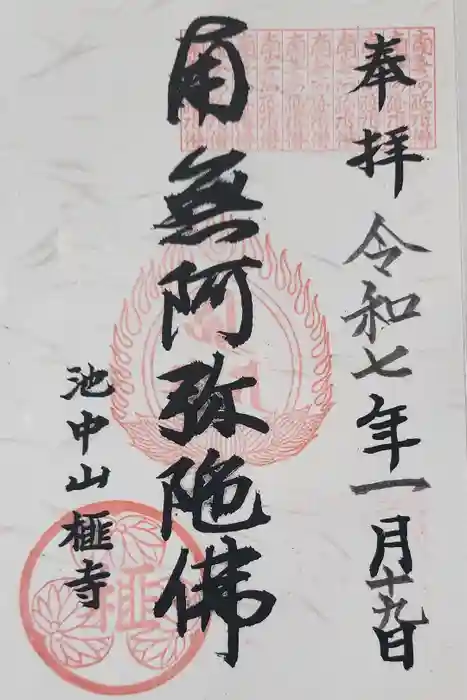 奉拝 令和七年一月十九日
南無阿弥陀佛
池中山 榧寺
榧